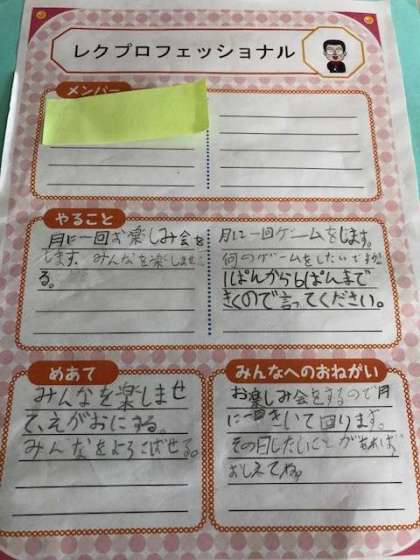 レクプロフェッショナル
メンバー
やること
月に一回お楽しみ会を
します。みんなを楽しませ
る。
月に一回ゲームをします。
何のゲームをしたいですか?
1ぱんから6ぱんまで
きくので言ってください。
めあて
みんなを楽しませ
て、えがおにする。
みんなをよろこばせる。
みんなへのおねがい
お楽しみ会をするので月
に一回きいて回ります。
その日したいことがあれば
おしえてね